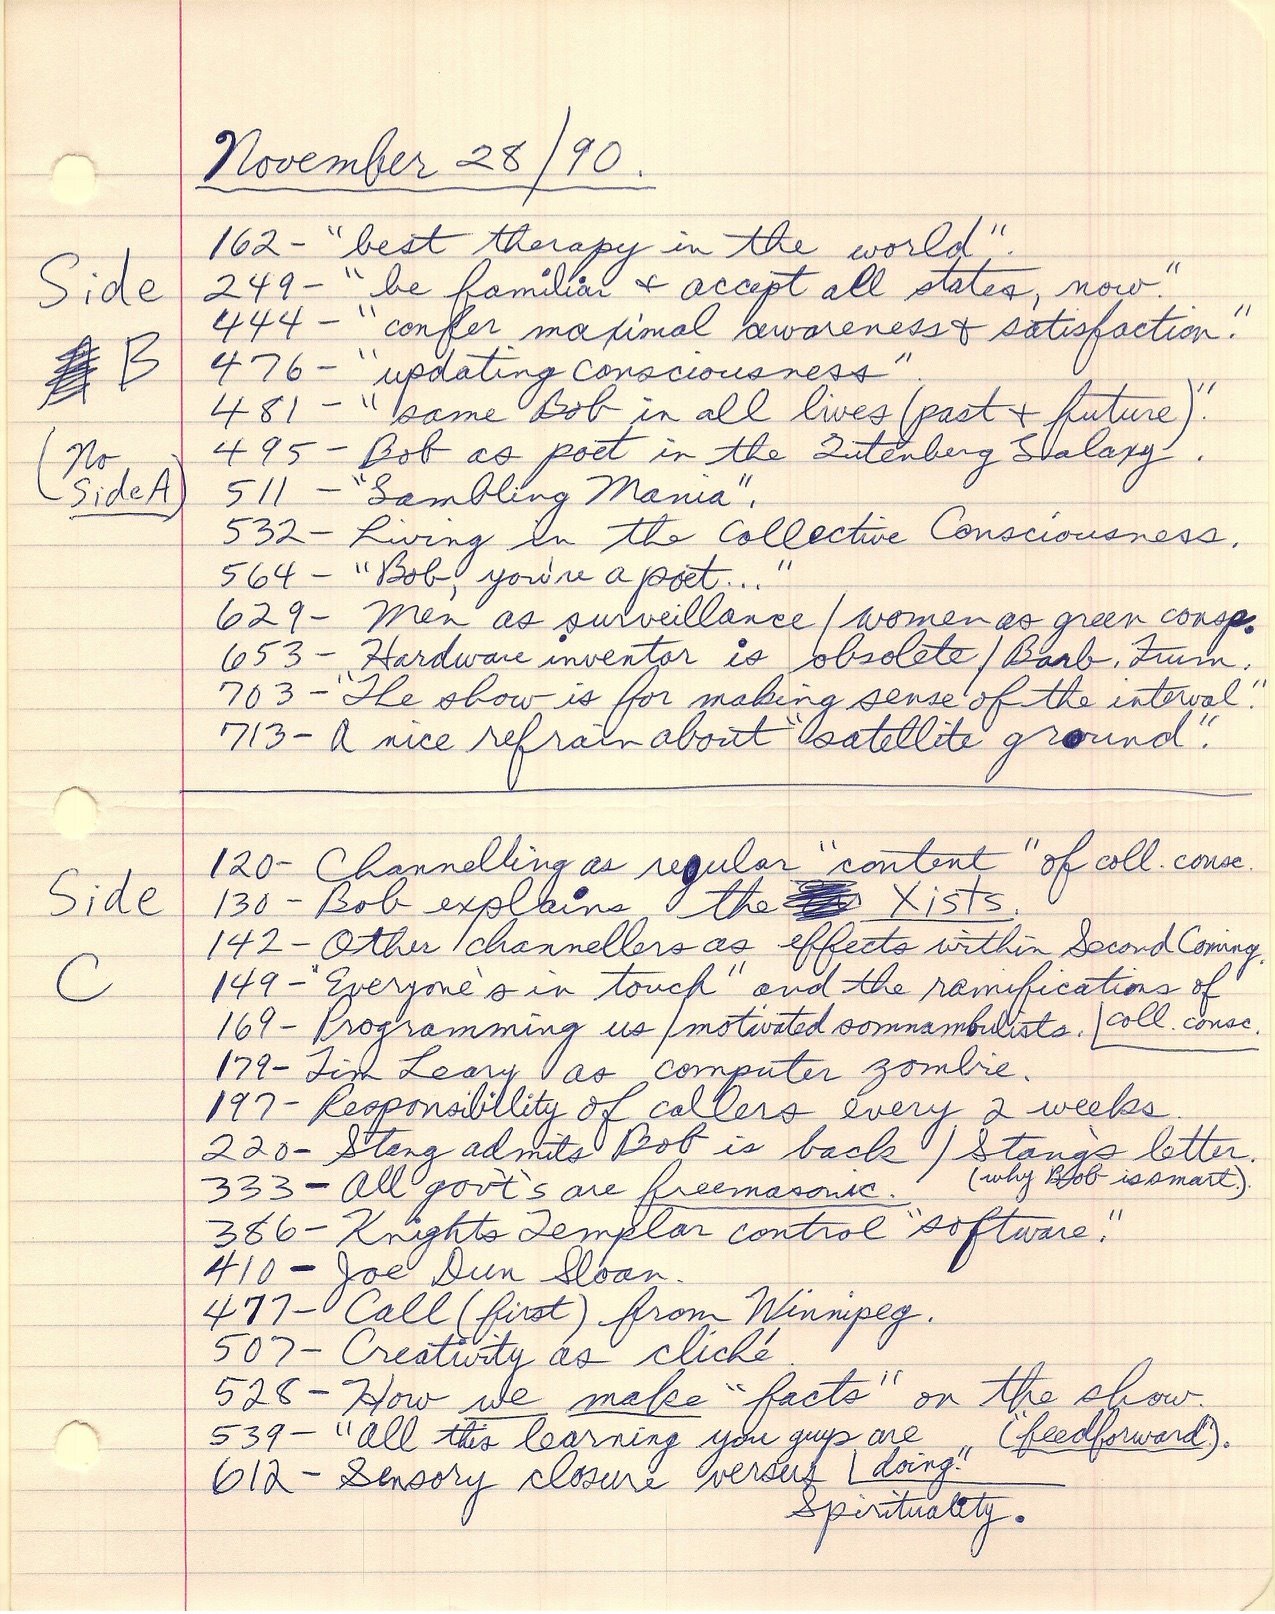 November 28/90.
Side B
(No Side A)
162 - "best therapy in the world".
249 - "be familiar & accept all states, now."
444 - "confer maximal awareness & satisfaction."
476 - "updating consciousness".
481 - "same Bob in all lives (past & future)".
495 - Bob as poet in the Gutenberg Galaxy.
511 - "Gambling Mania".
532 - Living in the Collective Consciousness.
564 - "Bob, you're a poet..."
629 - Men as surveillance / women as green consp.
653 - Hardware inventor is obsolete / Barb. Frum.
703 - "The show is for making sense of the interval."
713 - A nice refrain about "satellite ground".
Side C
120 - Channelling as regular "content" of coll. consc.
130 - Bob explains the Xists.
142 - Other channellers as effects within Second Coming.
149 - "Everyone's in touch" and the ramifications of coll. consc.
169 - Programming us / motivated somnambulists.
179 - Tim Leary as computer zombie.
197 - Responsibility of callers every 2 weeks.
220 - Stang admits Bob is back / Stang's letter.
(why Bob is smart).
333 - All gov't's are freemasonic.
386 - Knights Templar control "software."
410 - Joe Dun Sloan.
477 - Call (first) from Winnipeg.
507 - Creativity as cliché.
528 - How we make "facts" on the show.
539 - "All this learning you guys are doing." ("feedforward").
612 - Sensory closure versus Spirituality.